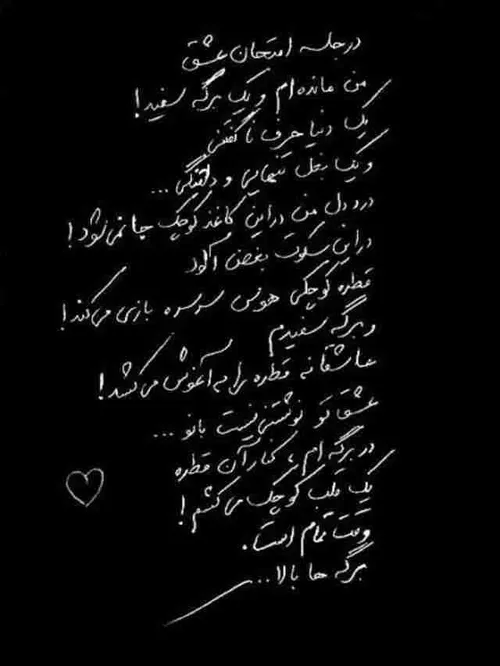 در جلسه امتحان عشق
من مانده‌ام و یک برگه سفید!
یک دنیا حرف ناگفتنی
و یک بغل تنهایی و دلتنگی...
درد دل من در این کاغذ کوچک جا نمی‌شود!
در این سکوت بغض آلود
قطره کوچکی هوس سرسره بازی می‌کند!
و برگه سفیدم
عاشقانه قطره را به آغوش می‌کشد!
عشق تو نوشتنی نیست بانو ...
در برگه‌ام، کنار آن قطره
یک قلب کوچک می‌کشم!
وقت تمام است.
برگه ها بالا...